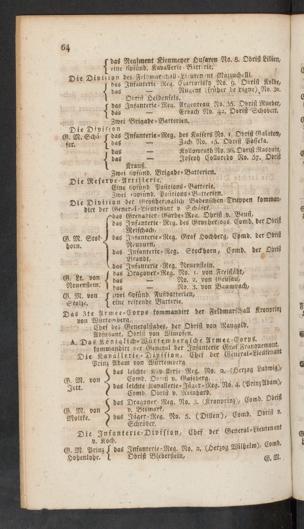 64
das Regiment Kienmeyer Husaren No. 8. Obrist Lilien,
eine 6pfünd. Kavallerie-Batterie.
Die Division des Feldmarschall-Lieutenant Mazuchelli.
das Infanterie-Reg. No. 9. Obrist
das — Nugent (früher de Vigne) No. 30.
Obrist
das Infanterie-Reg. Argenteau No. 35. Obrist
das — Erbach No. 42. Obrist
Zwei Brigade-Batterien.
Die Division
G. M.
das Infanterie-Reg. des Kaisers No. 1. Obrist
das — Zach No. 15. Obrist
das — No. 36. Obrist
das — Joseph Colloredo No. 57. Obrist
Zwei 6pfünd. Brigade-Batterien.
Die Reserve-Artillerie.
Eine 6pfünd. Positions-Batterie.
Zwei 12pfünd. Positions-Batterien.
Die Division der Großherzoglich Badenschen Truppen komman-
dirt der General-Lieutenant v. Schäfer.
G. M. Stock-
horn.
das Grenadier-Garde-Reg. Obrist v. Beust,
das Infanterie-Reg. des Großherzogs, Comd. der Obrist
das Infanterie-Reg. Graf Hochberg, Comd. der Obrist
das Infanterie-Reg. Stockhorn, Comd. der Obrist
Brandt,
das Infanterie-Reg. Neuenstein.
G. Lt. von
Neuenstein.
das Dragoner-Reg. No. 1. von Freistätt,
das — No. 2. von
das — No. 3. von
G. M. von
zwei 6pfünd. Fußbatterien,
eine reitende Batterie.
Das 3te Armee-Corps kommandirt der Feldmarschall Kronprinz
von Würtemberg.
Chef des Generalstabes, der Obrist von Bangold.
Adjutant, Obrist von
A. Das Königlich-Würtembergische Armee-Corps,
kommandirt der General der Infanterie Graf Franquemont.
Die Kavallerie-Division, Chef der General-Lieutenant
Prinz Adam von Würtemberg.
G. M. von
Jett.
das leichte Kavallerie-Reg. No. 2. (Herzog Ludwig),
Comd. Obrist v. Gaisberg,
das leichte Kavallerie-Jäger-Reg. No. 4. (Prinz Adam)
Comd. Obrist v. Reinhard.
G. M. von
Moltke.
das Dragoner-Reg. No. 3. (Kronprinz), Comd. Obrist
v. Bismark,
das Jäger-Reg. No. 5. (Dillen), Comd. Obrist v.
Die Infanterie-Division, Chef der General-Lieutenant
v. Koch.
G. M. Prinz
Hohenlohe.
das Infanterie-Reg. No. 2, (Herzog Wilhelm), Comd.
Obrist Biberstein,
G. M.